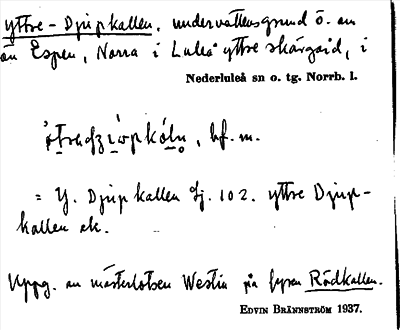 yttre-Djupkallen, undervattensgrund ö. om
ön Espen, Norra i Luleå yttre skärgård, i
Nederluleå sn o. tg. Norrb. l.
, bf. m.
= Y. Djupkallen Sj. 102. yttre Djup-
kallen ek.
Uppg. av mästerlotsen Westin på fyren Rödkallen.
EDVIN BRÄNNSTRÖM 1937.